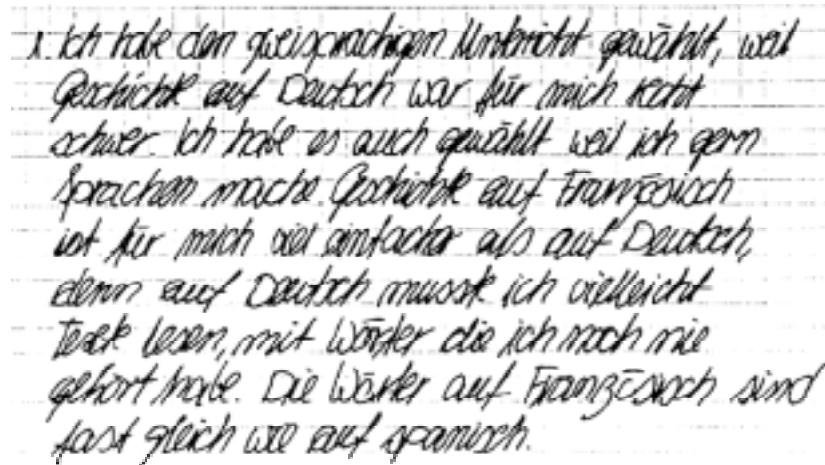 1. Ich habe den zweisprachigen Unterricht gewählt, weil
Geschichte auf Deutsch war für mich recht
schwer. Ich habe es auch gewählt weil ich gern
Sprachen mache. Geschichte auf Französisch
ist für mich viel einfacher als auf Deutsch,
denn auf Deutsch musste ich vielleicht
Texte lesen, mit Wörter die ich noch nie
gehört habe. Die Wörter auf Französisch sind
fast gleich wie auf spanisch.